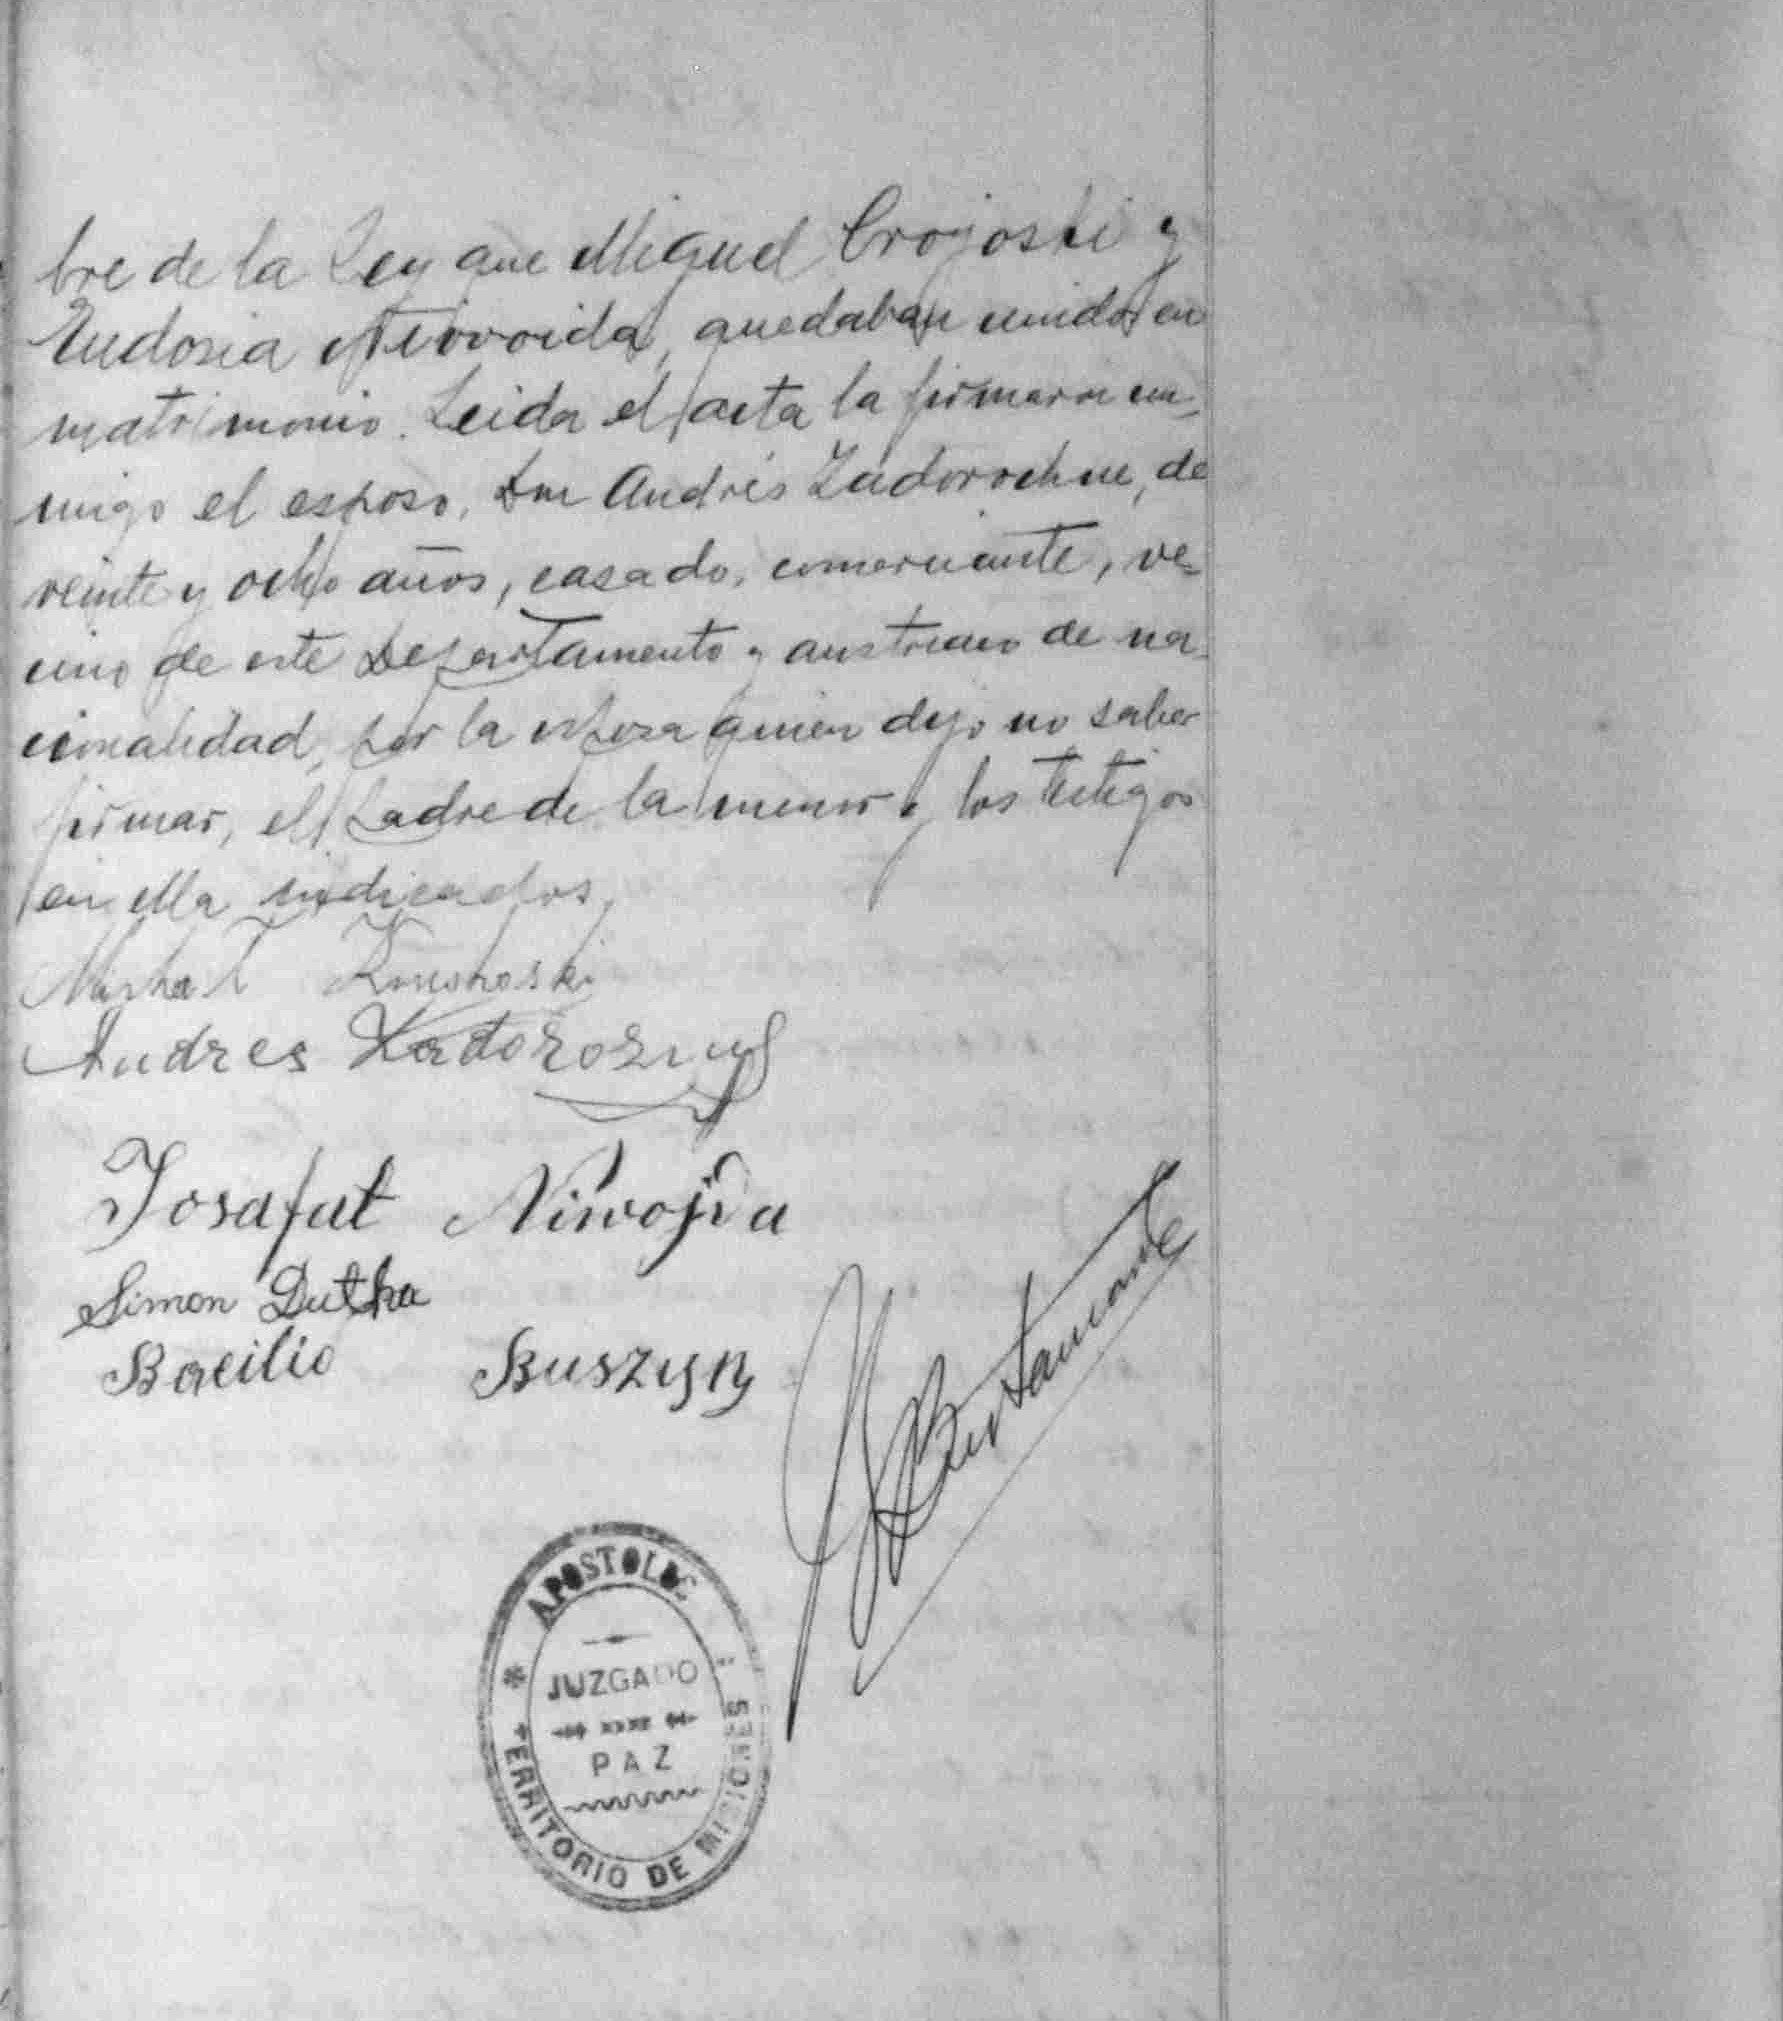 bre de la Ley que Miguel Crojoski y
Eudosia Nievoida, quedaban unidos en
matrimonio. Leida el acta la firmaron con-
migo el esposo, Don Andrés Zadorochne, de
veinte y ocho años, casado, comerciante, ve-
cino de este Departamento y austriaco de na-
cionalidad, por la esposa quien dijo no saber
firmar, el padre de la menor y los testigos
en ella indicados.
Andres Zadorozny
Josafat Niwojda
Simon Dutka
Bacilio Buszyn
Bustamante
APOSTOLES
JUZGADO
PAZ
TERRITORIO DE MISIONES